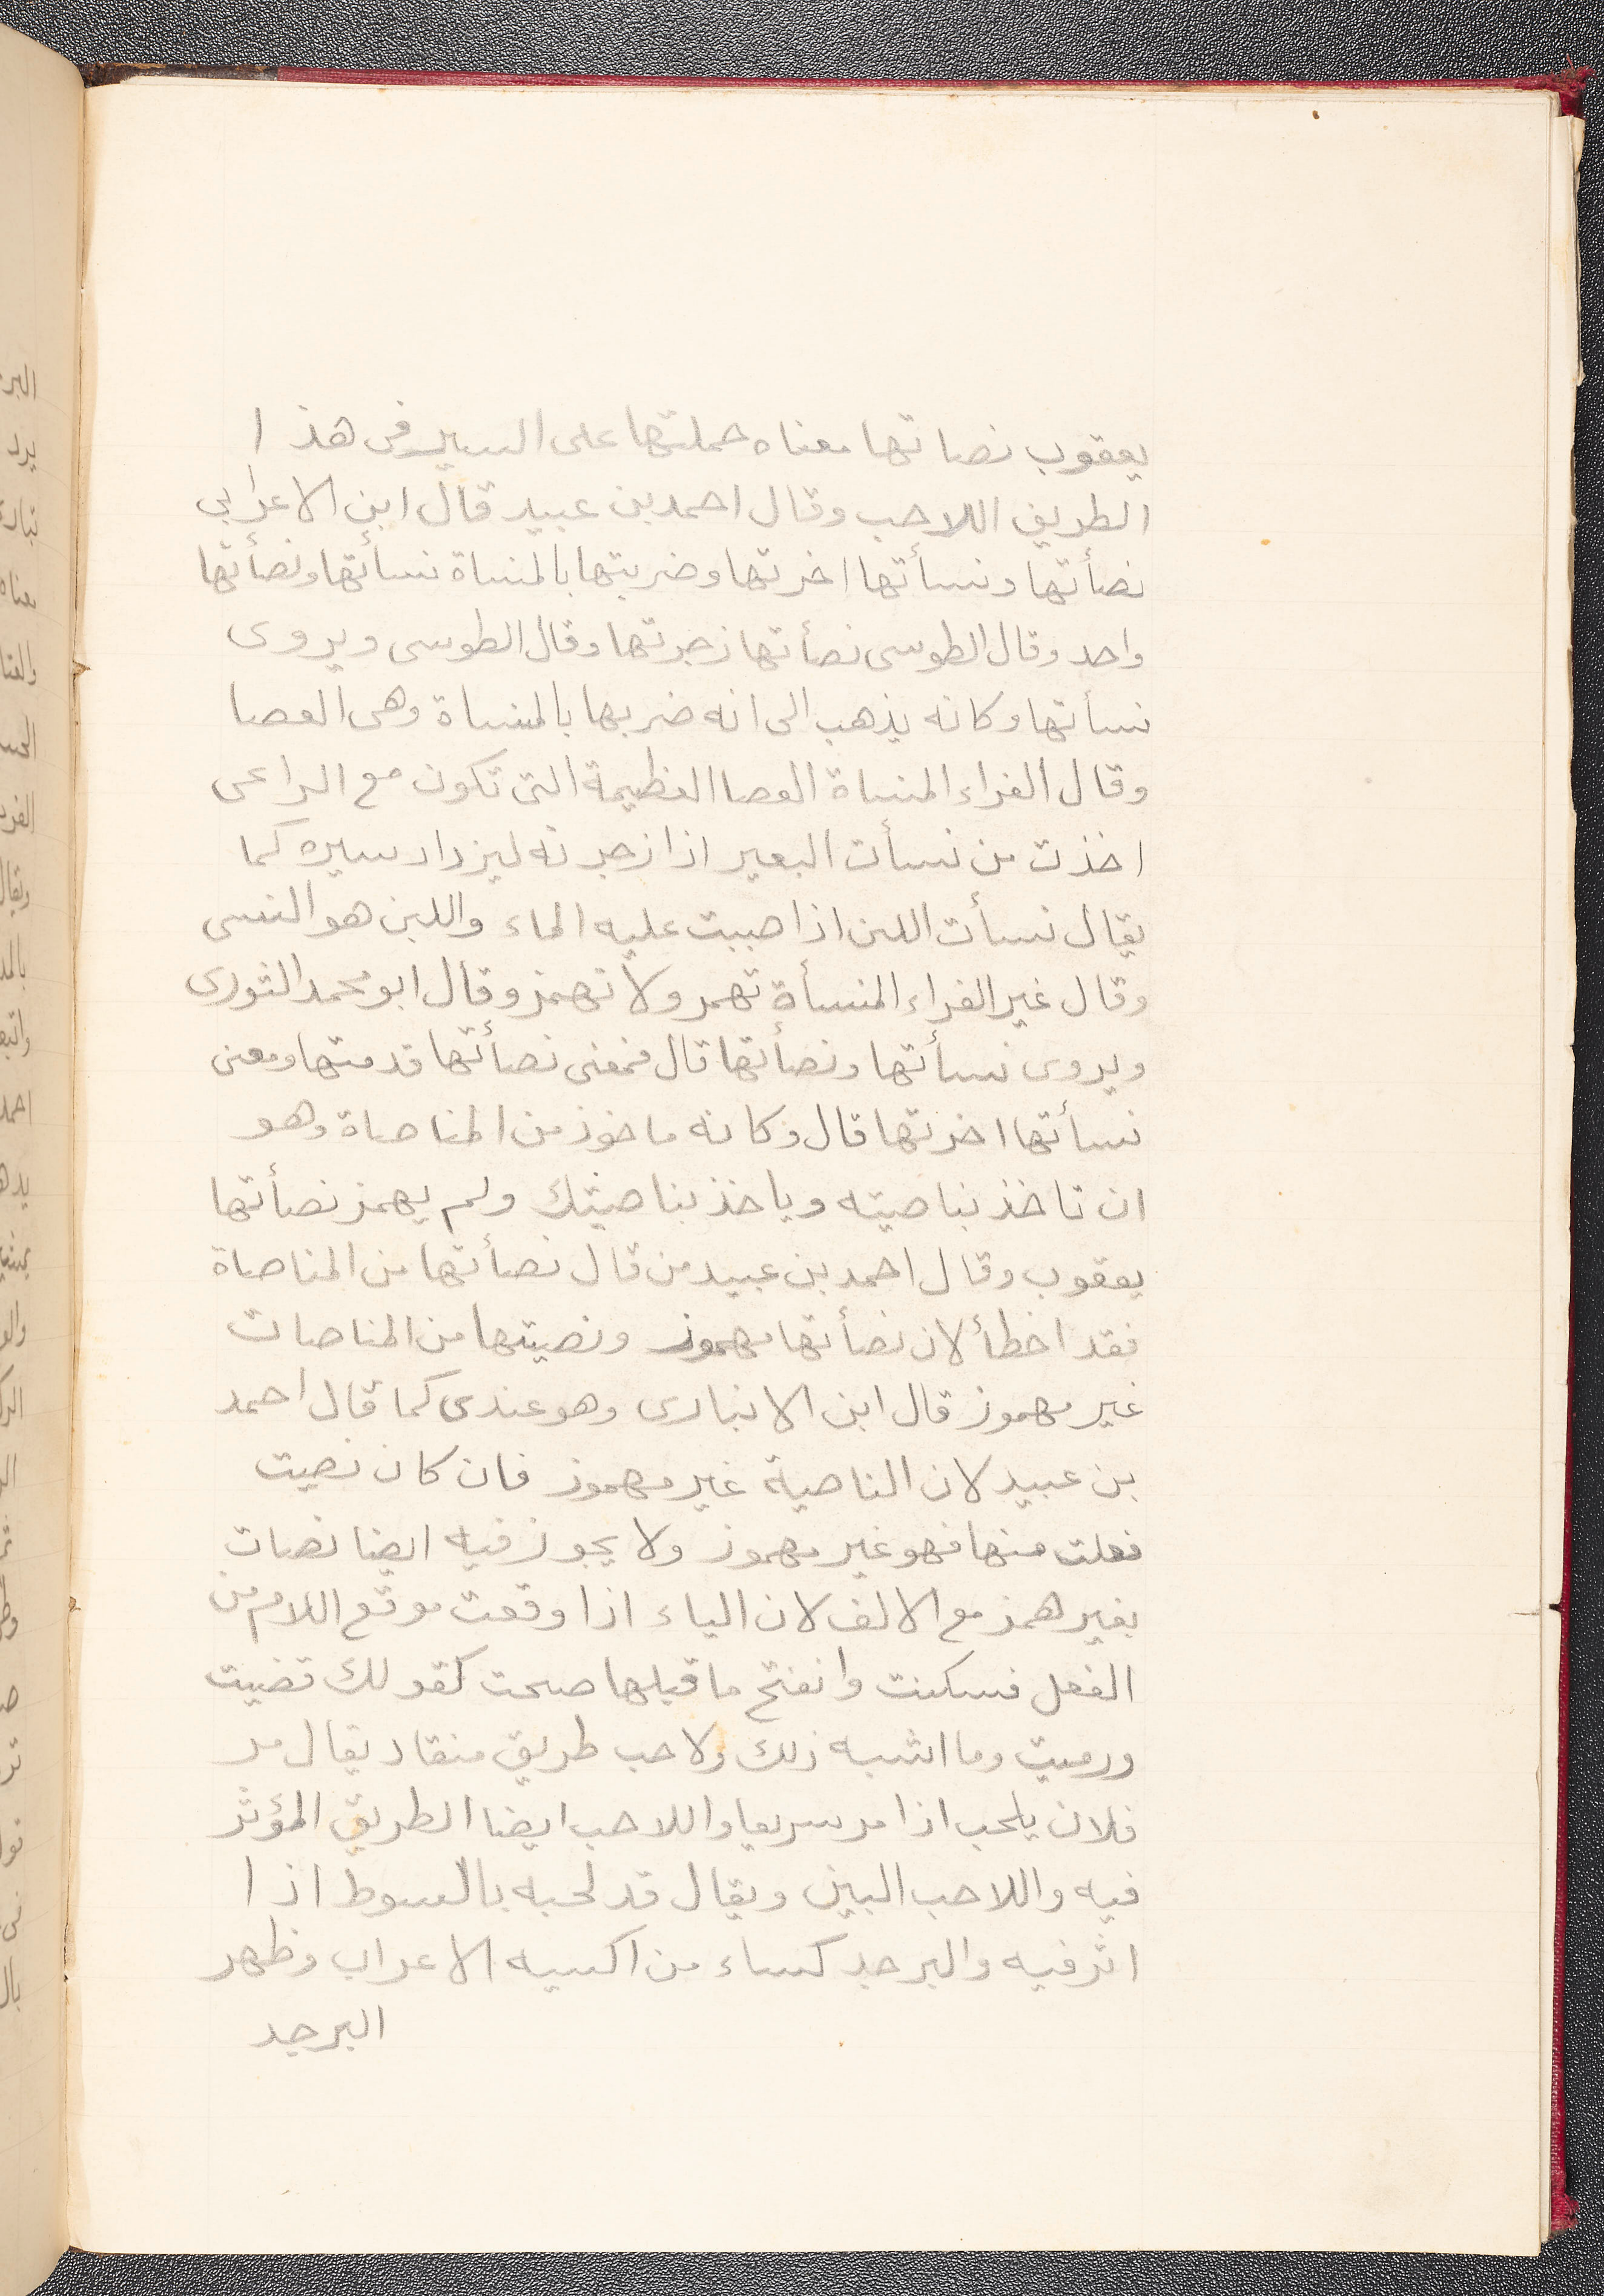 يعقوب نصاتها معناه حملتها على السير فى هذا
الطريق اللاحب وقال احمد بن عبيد قال ابن الاعرابى
نصأتها ونسأتها اخرتها وضربتها بالمنساة نسأتها ونصأتها
واحد وقال الطوسى نصأتها زجرتها وقال الطوسى ويروى
نسأتها وكانه يذهب الى انه ضربها بالمنساة وهى العصا
وقال الفراء المنساة العصا العظيمة التى تكون مع الراعى
اخذت من نسأت البعير اذا زجرته ليزداد سيره كما
يقال نسأت اللبن اذا صببت عليه الماء واللبن هو النسى
وقال غير الفراء المنسأة تهمر ولا تهمز وقال ابو محمد الثورى
ويروى نسأتها ونصأتها قال فمعنى نصأتها قدمتها ومعنى
نسأتها اخرتها قال وكانه ماخوذ من المناصاة وهو
ان تاخذ بناصيته وياخذ بناصيتك ولم يهمز نصأتها
يعقوب وقال احمد بن عبيد من قال نصأتها من المناصاة
فقد اخطأ لان نصأتها مهموز ونصيتها من المناصات
غير مهموز قال ابن الانبارى وهو عندى كما قال احمد
بن عبيد لان الناصية غير مهموز فان كان نصيت
فعلت منها فهو غير مهموز ولا يجوز فيه ايضا نصات
بغير همز مع الالف لان الياء اذا وقعت موقع اللام من
الفعل فسكنت وانفتح ما قبلها صحت كقولك قضيت
ورميت وما اشبه ذلك ولاحب طريق منقاد يقال مر
فلان يلحب اذا مر سريعا واللاحب ايضا الطريق المؤثر
فيه واللاحب البين ويقال قد لحبه بالسوط اذا
اثر فيه والبرجد كساء من اكسيه الاعراب وظهر
البرجد